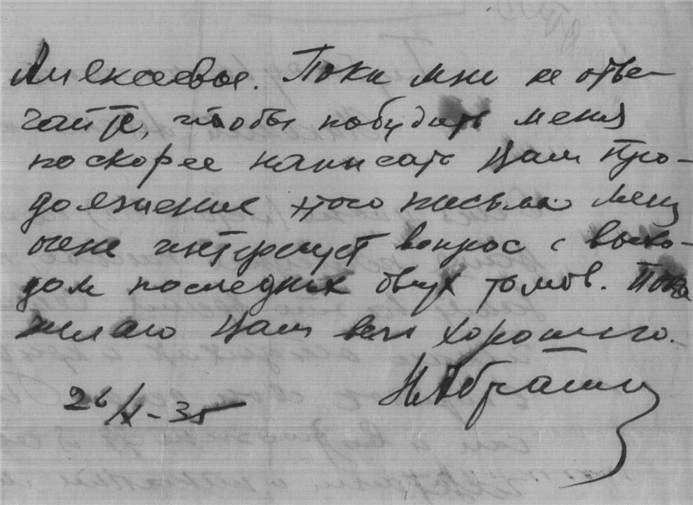 Алексеевые. Пока мне не отве-
чайте, чтобы побудить меня
поскорее написать Вам про-
должение этого письма. Меня
очень интересует вопрос с выхо-
дом последних двух томов. Пока
желаю Вам всего хорошего.
26/X-35